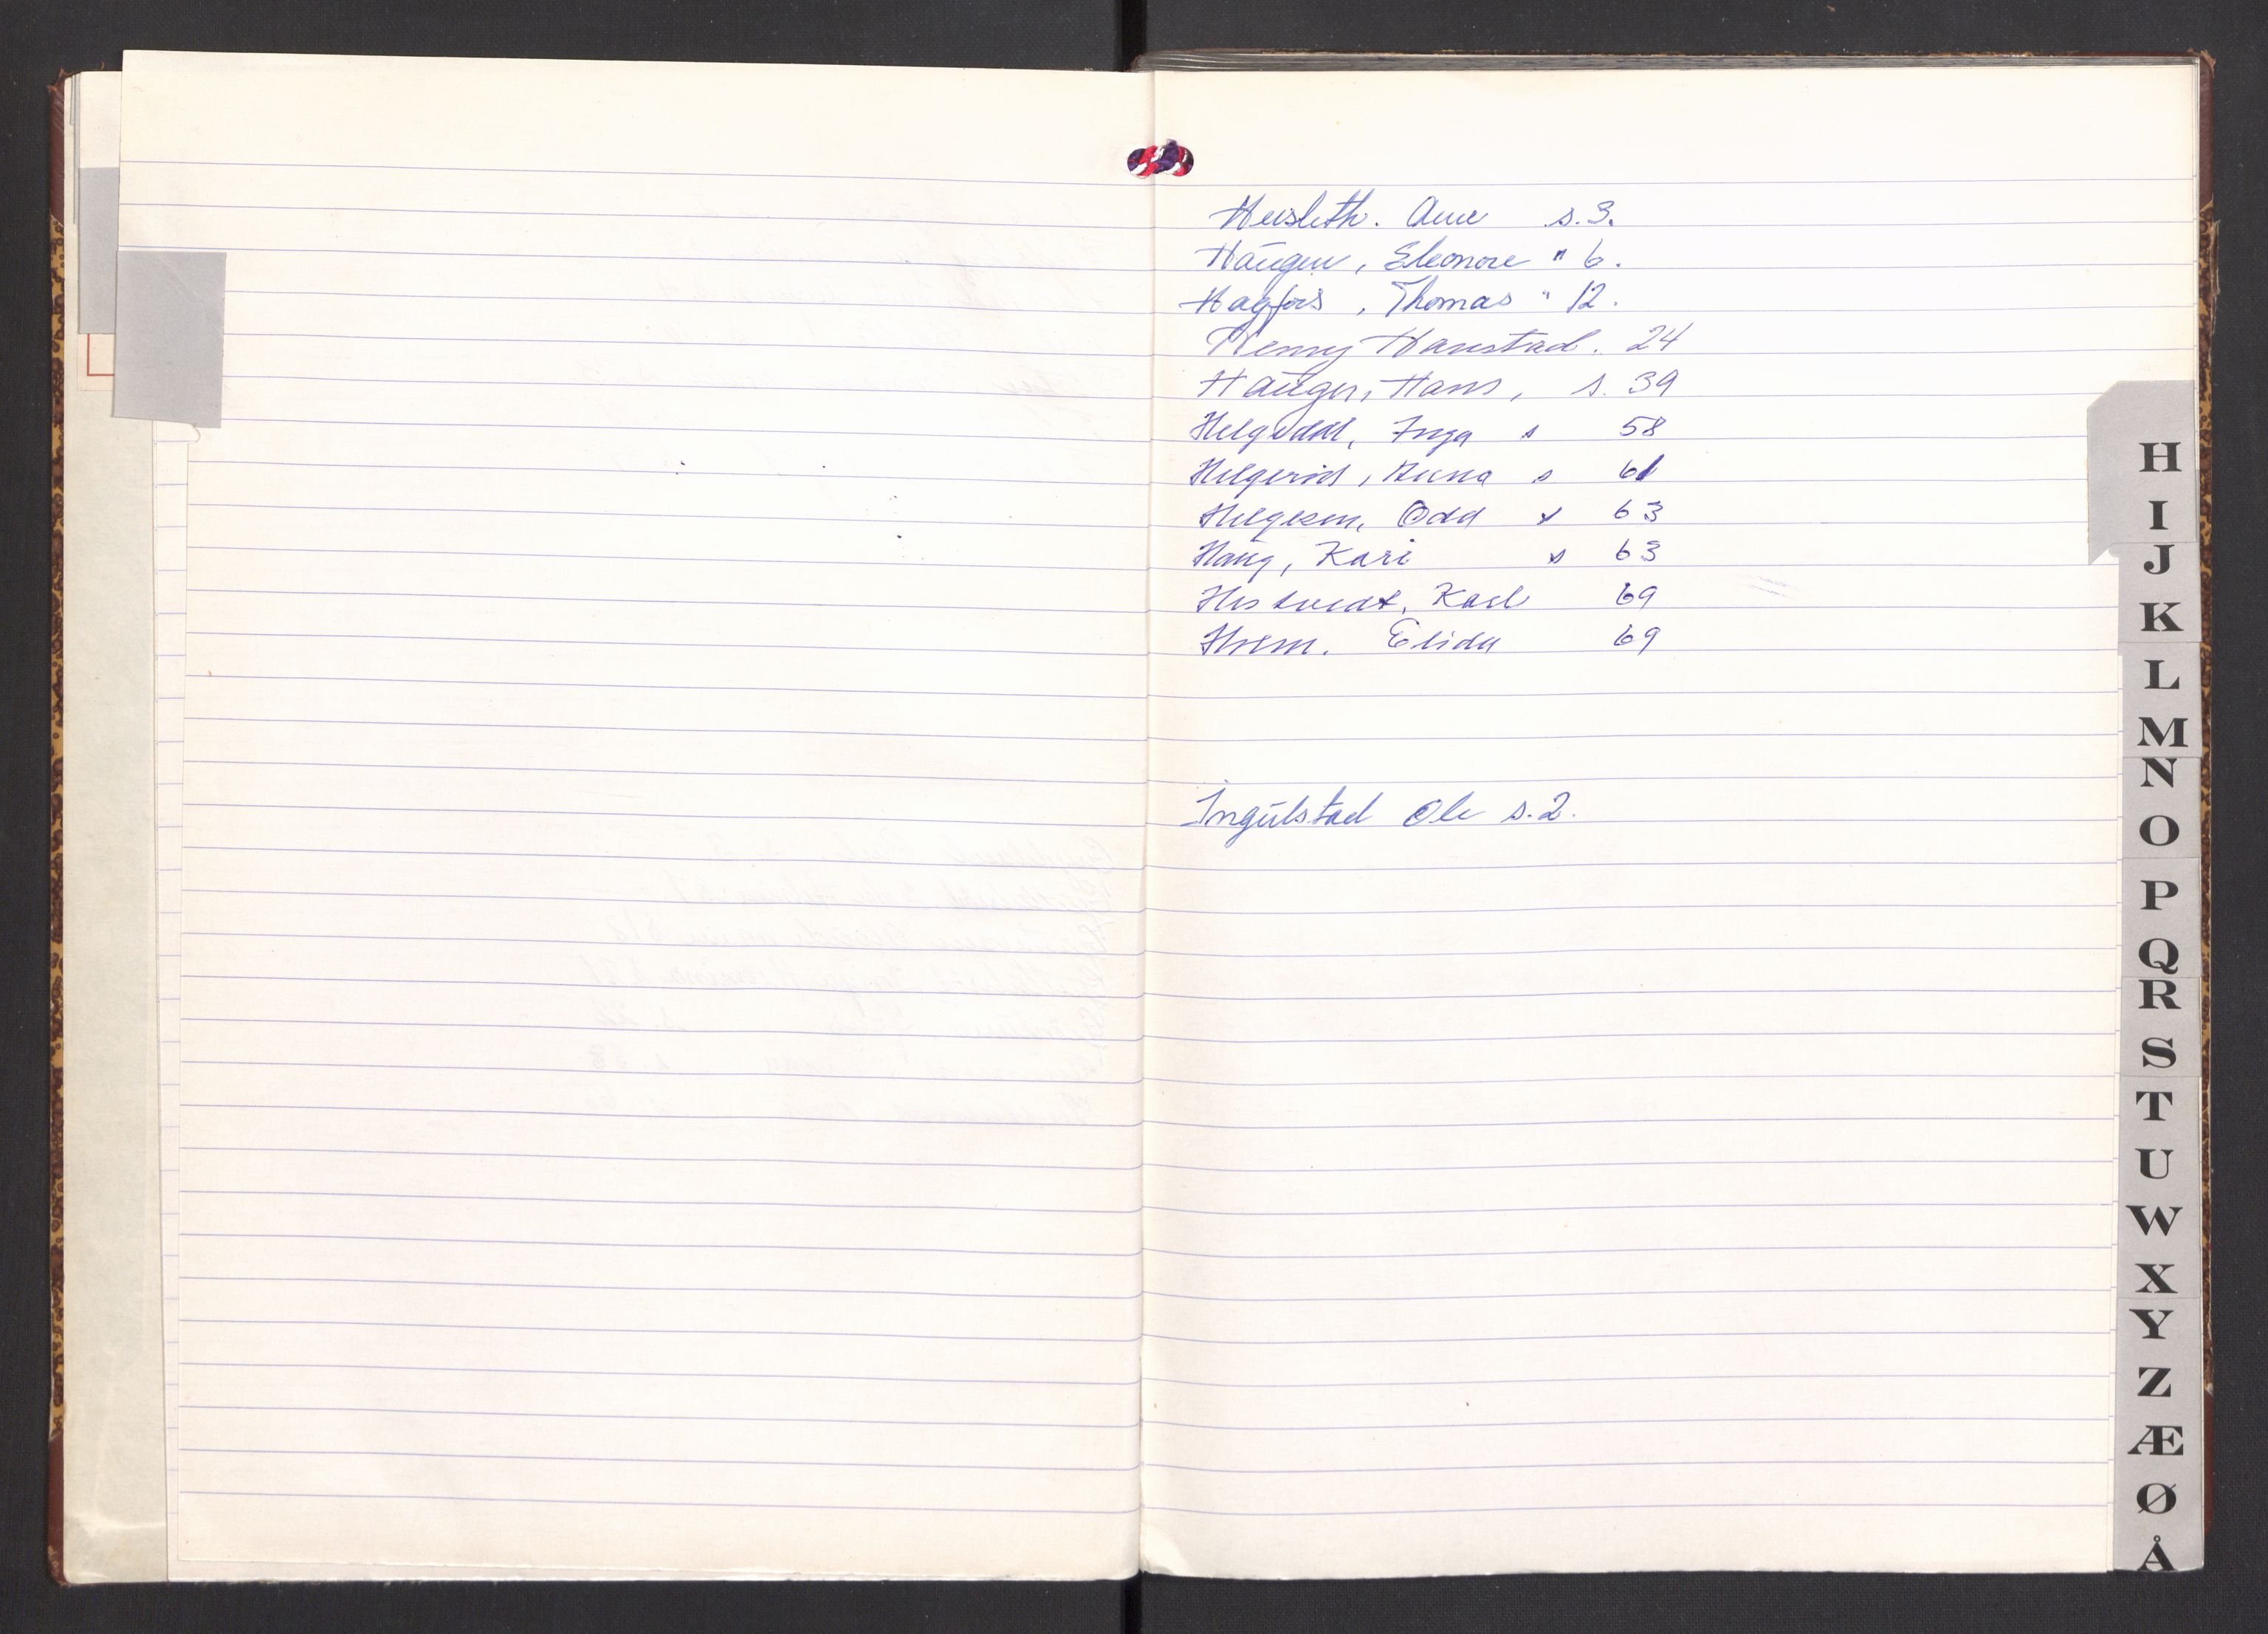 Heisleth. Arne s. 3.
Haugen, Eleonore " 6.
Hagfors, Thomas " 12.
Henny Hanstad. 24
Haugen, Hans, s. 39
Inga s 58
Helgerød, Anna s 61
Helgesen, Odd s 63
Haug, Kari s 63
Hostvedt, Karl 69
Hvem. Elida 69
Ingulstad Ole s. 2.
H
I
J
K
L
M
N
O
P
Q
R
S
T
U
W
X
Y
Z
Æ
Ø
Å